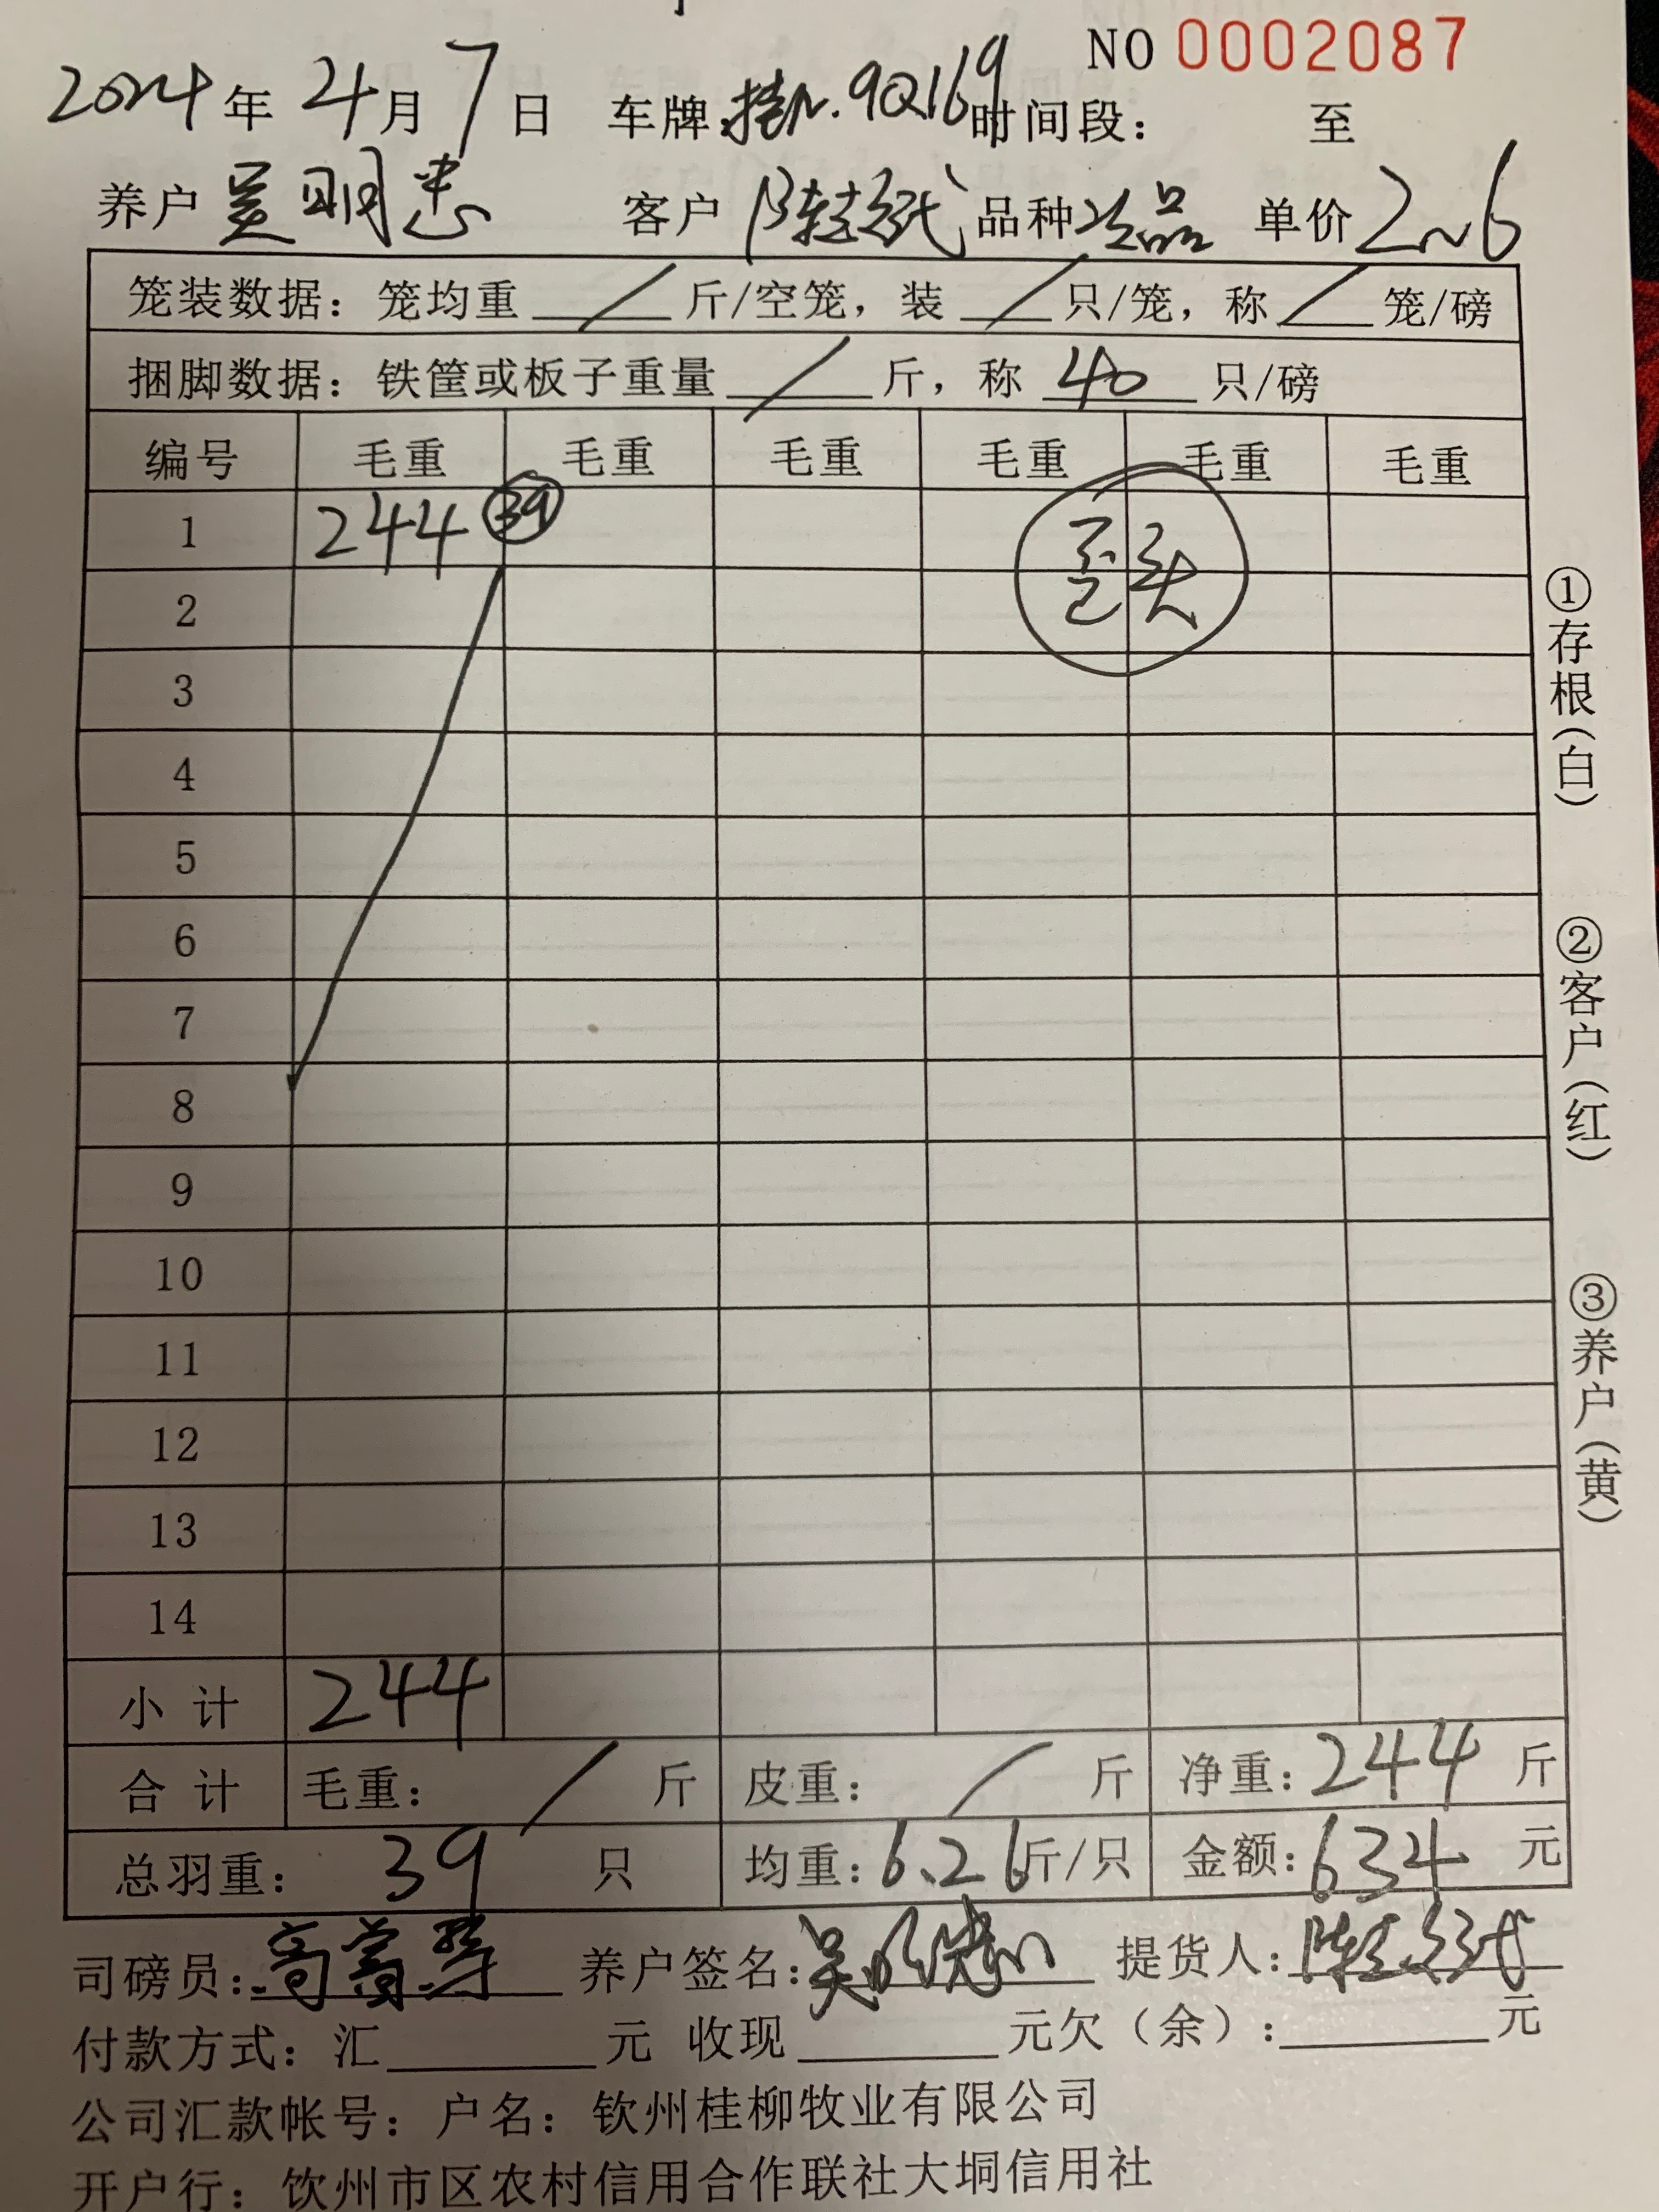 NO 0002087
2024年4月7日 车牌 桂N.9Q169 时间段： 至
养户 吴明忠 客户 陈 品种 次品 单价 2.6
笼装数据：笼均重 / 斤/空笼，装 / 只/笼，称 / 笼/磅
捆脚数据：铁筐或板子重量 / 斤，称 40 只/磅
编号 毛重 毛重 毛重 毛重 毛重 毛重
1 244 39 歪头
2
3
4
5
6
7
8
9
10
11
12
13
14
小计 244
合计 毛重： / 斤 皮重： / 斤 净重：244 斤
总羽重： 39 只 均重：6.26斤/只 金额：634 元
司磅员： 养户签名：吴明忠 提货人：陈
付款方式：汇 元 收现 元欠（余）： 元
公司汇款帐号：户名：钦州桂柳牧业有限公司
开户行：钦州市区农村信用合作联社大垌信用社
①存根（白）
②客户（红）
③养户（黄）